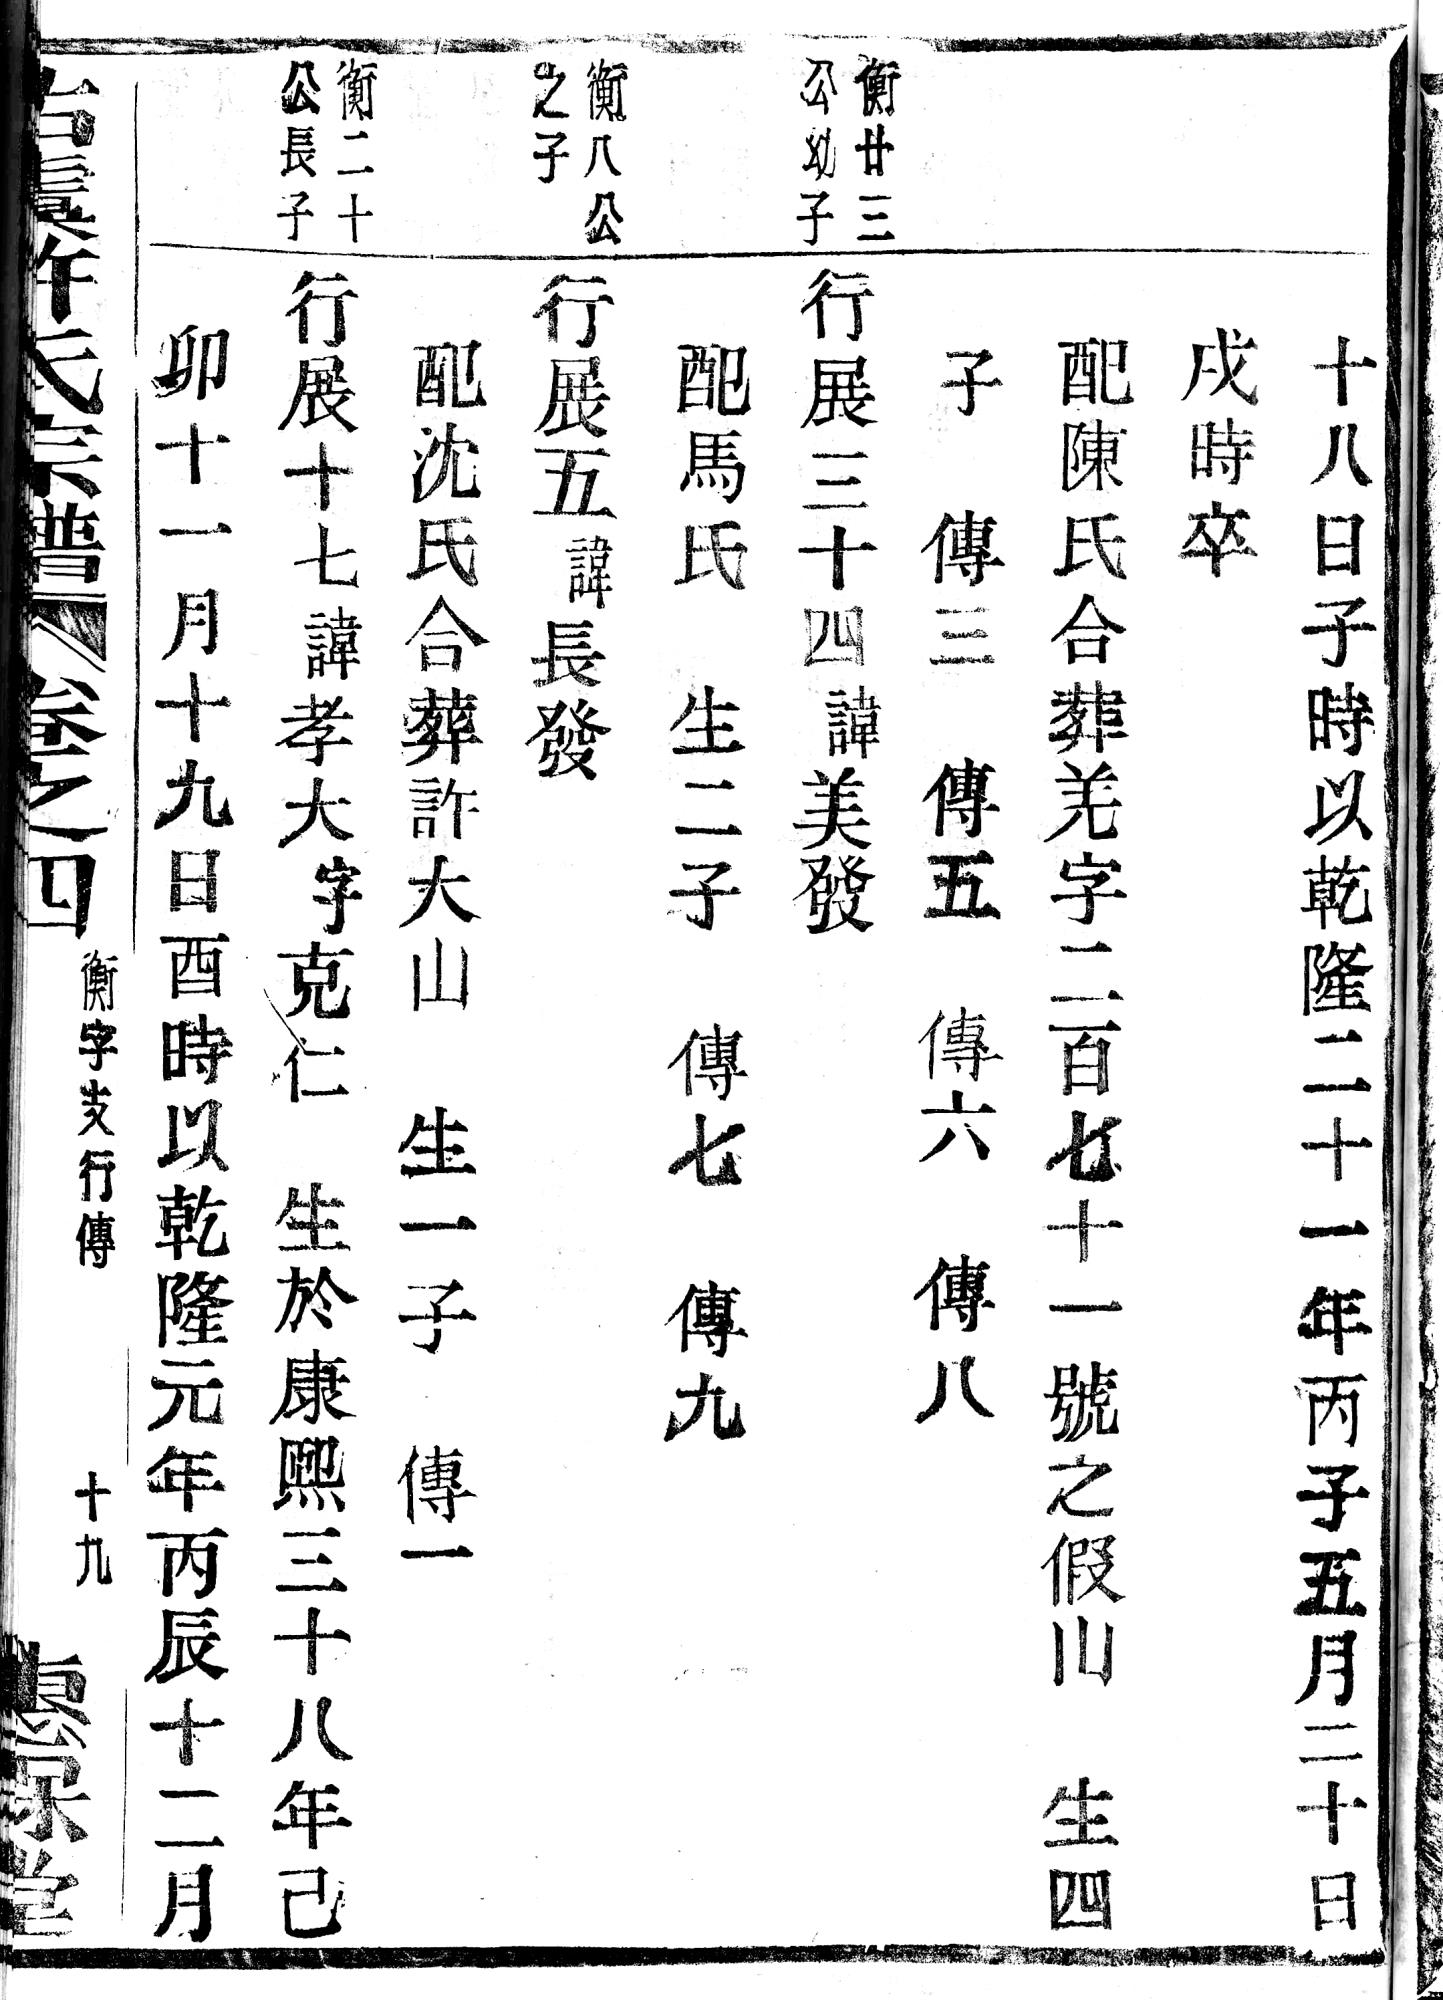 十八日子時以乾隆二十一年丙子五月二十日
戌時卒
配陳氏合葬羌字二百七十一號之假山　生四
子　傳三　傳五　傳六　傳八
衡廿三
公幼子
行展三十四諱美發
配馬氏　生二子　傳七　傳九
衡八公
之子
行展五諱長發
配沈氏合葬許大山　生一子　傳一
衡二十
公長子
行展十七諱孝大字克仁　生於康熙三十八年己
卯十一月十九日酉時以乾隆元年丙辰十二月
許氏宗譜　卷之四
衡字支行傳
十九
堂